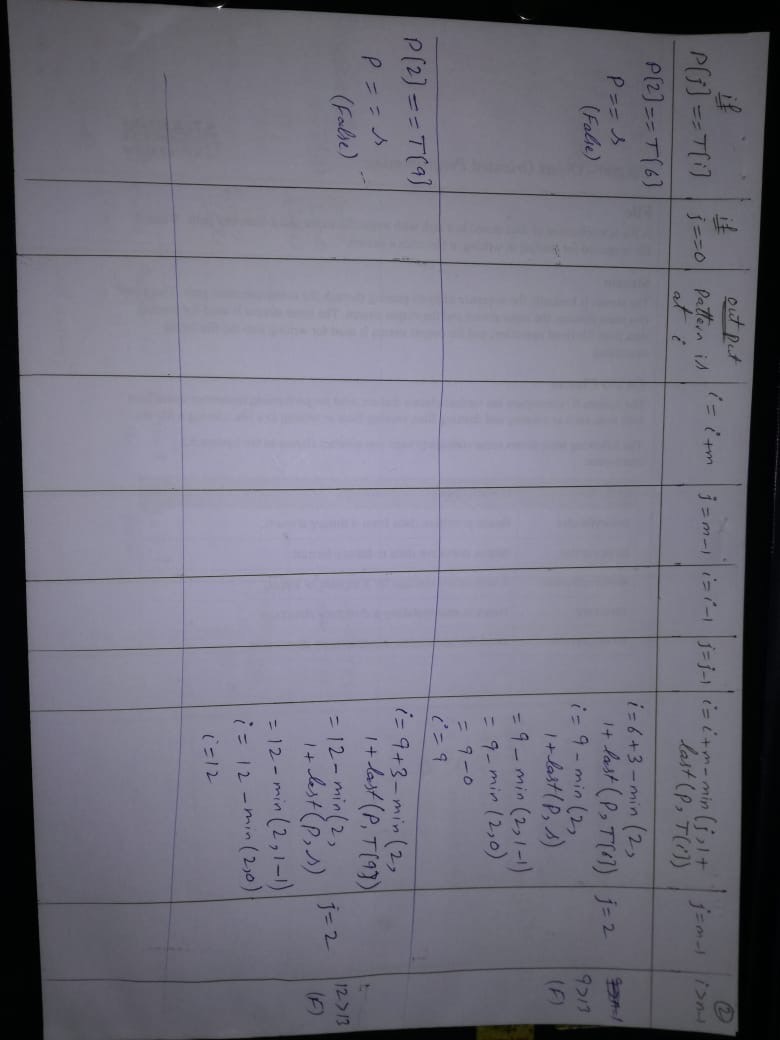 ②
if
P[j] == T[i]
if
j==0
output
Pattern is
at i
i = i+m
j=m-1
i=i-1
j=j-1
i=i+m-min(j,1+
last(P, T[i])
j=m-1
i>n-1
P[2]==T[6]
P== s
(False)
i=6+3-min(2,
1+last(P, T[6])
i= 9-min(2,
1+last(P, s)
=9-min(2,1-1)
= 9-min(2,0)
= 9-0
i=9
j=2
9>13
(F)
P[2]==T[9]
P == s
(False)
i=9+3-min(2,
1+last(P, T[9])
=12-min(2,
1+last(P, s)
=12-min(2,1-1)
i= 12-min(2,0)
i=12
j=2
12>13
(F)